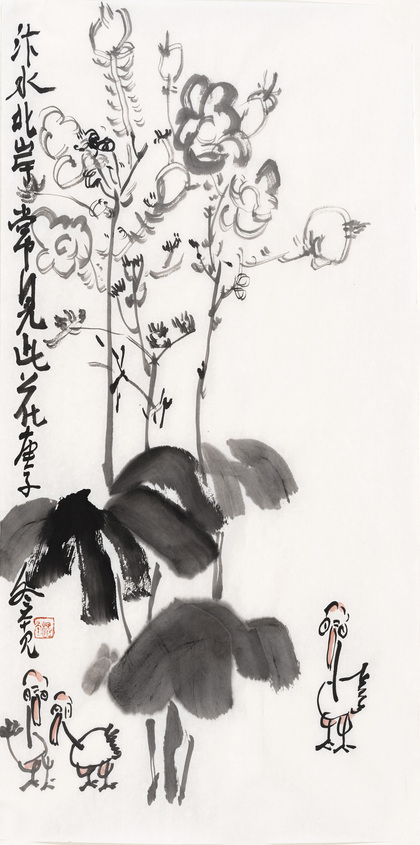 汴水北岸常见此花庚子
冬